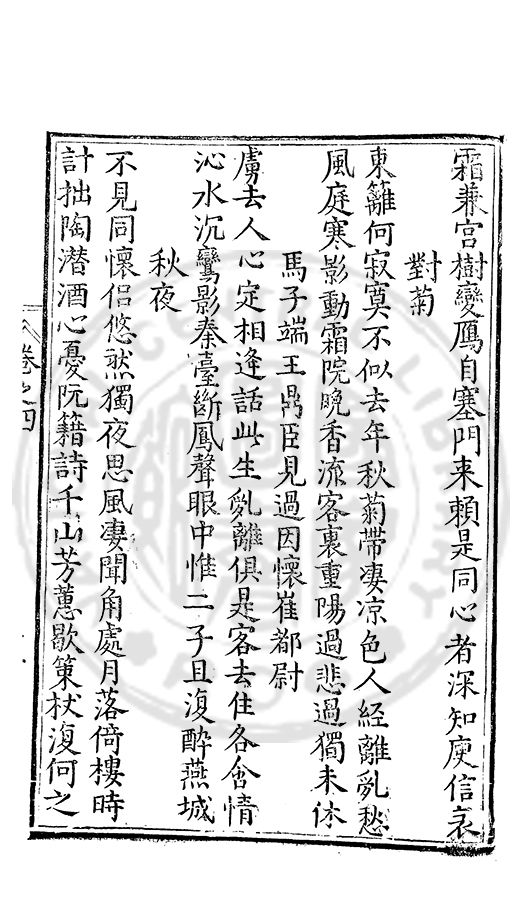 霜兼宮樹變鴈自塞門来賴是同心者深知庾信哀
對菊
東籬何寂寞不似去年秋菊帶凄凉色人經離亂愁
風庭寒影動霜院晚香流客裏重陽過悲過獨未休
馬子端王鼎臣見過因懷崔都尉
虜去人心定相逢話此生亂離俱是客去住各含情
沁水沉鸞影秦臺斷鳳聲眼中惟二子且復酔燕城
秋夜
不見同懷侣悠然獨夜思風凄聞角處月落倚樓時
計拙陶潜酒心憂阮籍詩千山芳蕙歇策杖復何之
卷之四